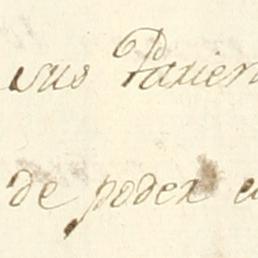 sus Parien
de poder e